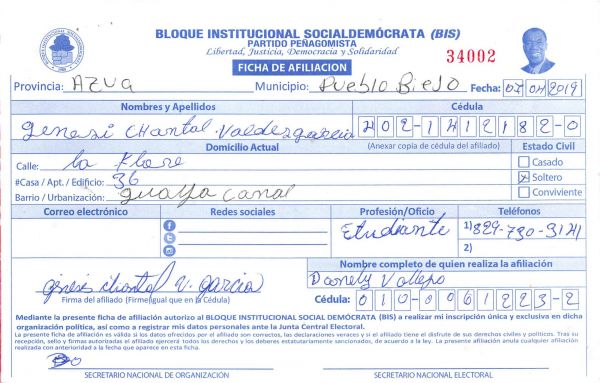 BLOQUE INSTITUCIONAL SOCIALDEMÓCRATA (BIS)
PARTIDO PEÑAGOMISTA
Libertad, Justicia, Democracia y Solidaridad
34002
FICHA DE AFILIACION
Provincia: AZUA Municipio: Pueblo Biejo Fecha: 07 04 2019
Nombres y Apellidos Cédula
Genesi Chantal Valdez garcia 202-1412182-0
Domicilio Actual (Anexar copia de cédula del afiliado) Estado Civil
Calle: la Flore Casado
#Casa / Apt. / Edificio: 36 Soltero
Barrio / Urbanización: guaya canal Conviviente
Correo electrónico Redes sociales Profesión/Oficio Teléfonos
Etudiante 1) 829-730-3141
2)
Nombre completo de quien realiza la afiliación
genesis chantal v. garcia Danely Vallejo
Firma del afiliado (Firme igual que en la Cédula) Cédula: 010-0061223-2
Mediante la presente ficha de afiliación autorizo al BLOQUE INSTITUCIONAL SOCIAL DEMÓCRATA (BIS) a realizar mi inscripción única y exclusiva en dicha
organización política, así como a registrar mis datos personales ante la Junta Central Electoral.
La presente ficha de afiliación es válida si los datos ofrecidos por el afiliado son correctos, las declaraciones veraces y si el afiliado tiene el disfrute de sus derechos civiles y políticos. Tras su
recepción, sello y firmas autorizadas el afiliado ejercerá todos los derechos y los deberes estatutariamente sancionados, de acuerdo a la ley. La presente afiliación anula cualquier afiliación
realizada con anterioridad a la fecha que aparece en esta ficha.
SECRETARIO NACIONAL DE ORGANIZACIÓN SECRETARIO NACIONAL ELECTORAL